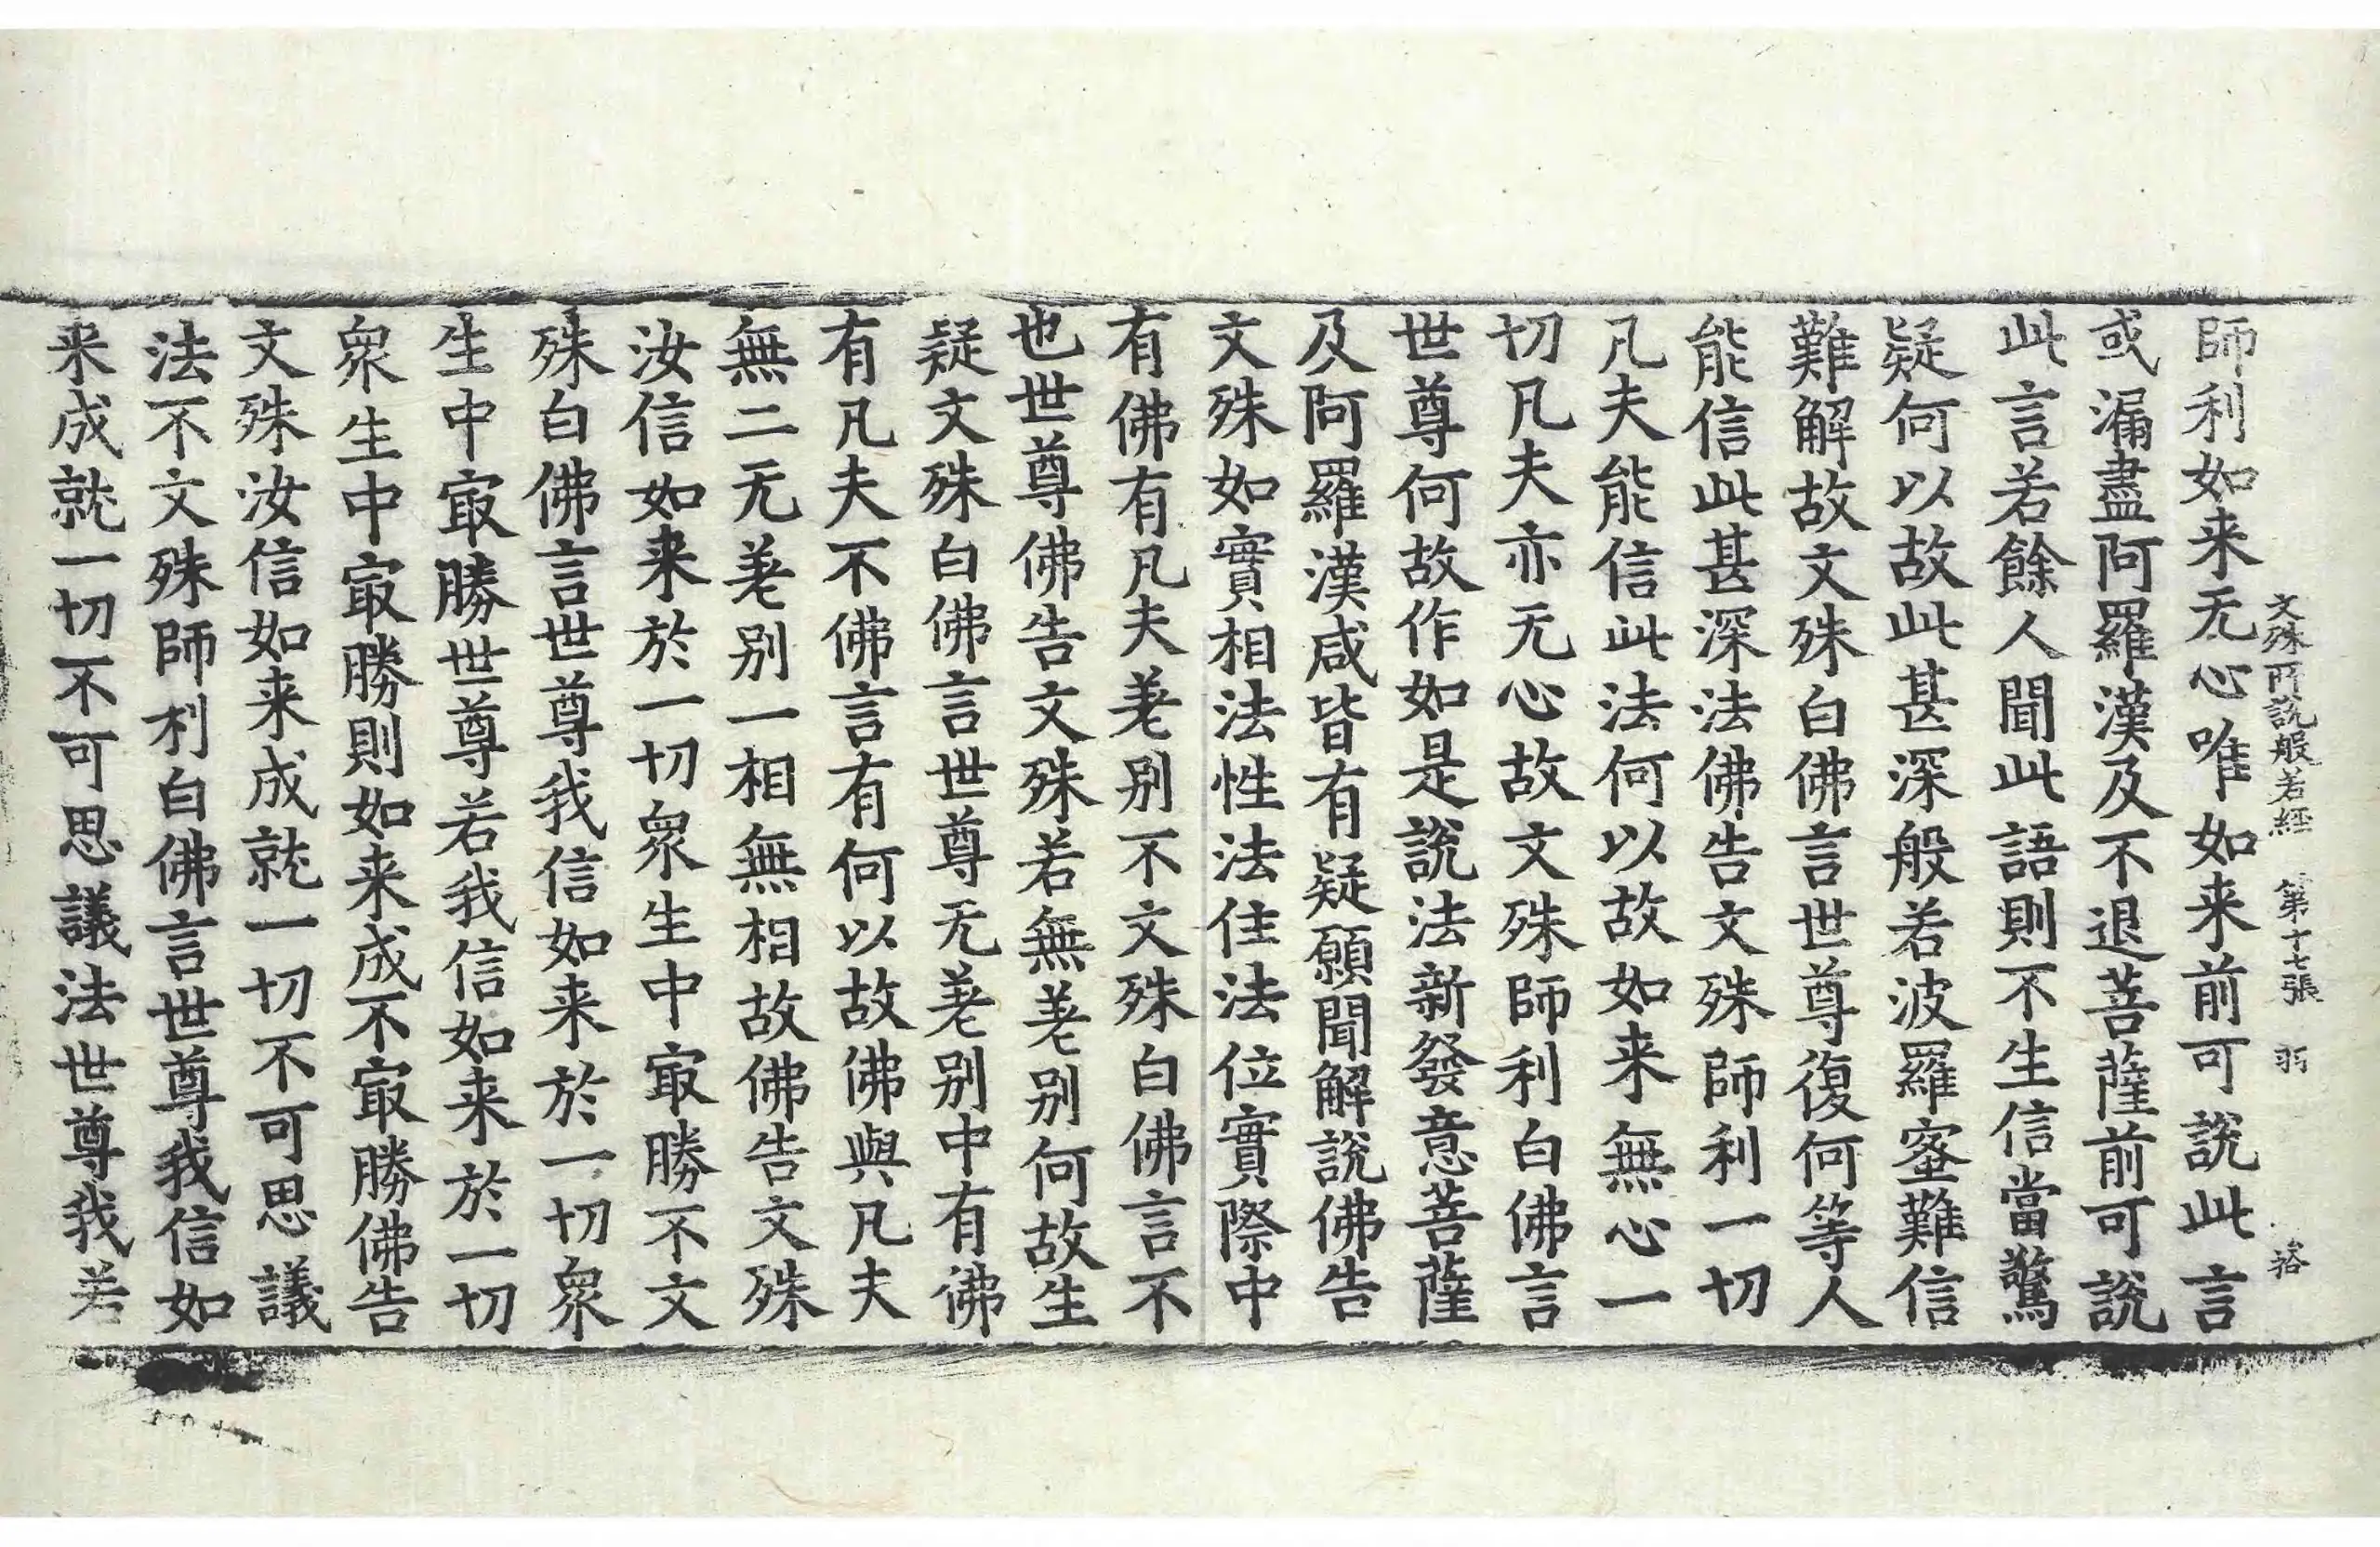 文殊所說般若經 第十七張 羽 拾
師利如来无心唯如来前可說此言
或漏盡阿羅漢及不退菩薩前可說
此言若餘人聞此語則不生信當驚
疑何以故此甚深般若波羅蜜難信
難解故文殊白佛言世尊復何等人
能信此甚深法佛告文殊師利一切
凡夫能信此法何以故如来無心一
切凡夫亦无心故文殊師利白佛言
世尊何故作如是說法新發意菩薩
及阿羅漢咸皆有疑願聞解說佛告
文殊如實相法性法住法位實際中
有佛有凡夫差别不文殊白佛言不
也世尊佛告文殊若無差别何故生
疑文殊白佛言世尊无差别中有佛
有凡夫不佛言有何以故佛與凡夫
無二无差别一相無相故佛告文殊
汝信如来於一切衆生中㝡勝不文
殊白佛言世尊我信如来於一切衆
生中㝡勝世尊若我信如来於一切
衆生中㝡勝則如来成不㝡勝佛告
文殊汝信如来成就一切不可思議
法不文殊師利白佛言世尊我信如
来成就一切不可思議法世尊我若